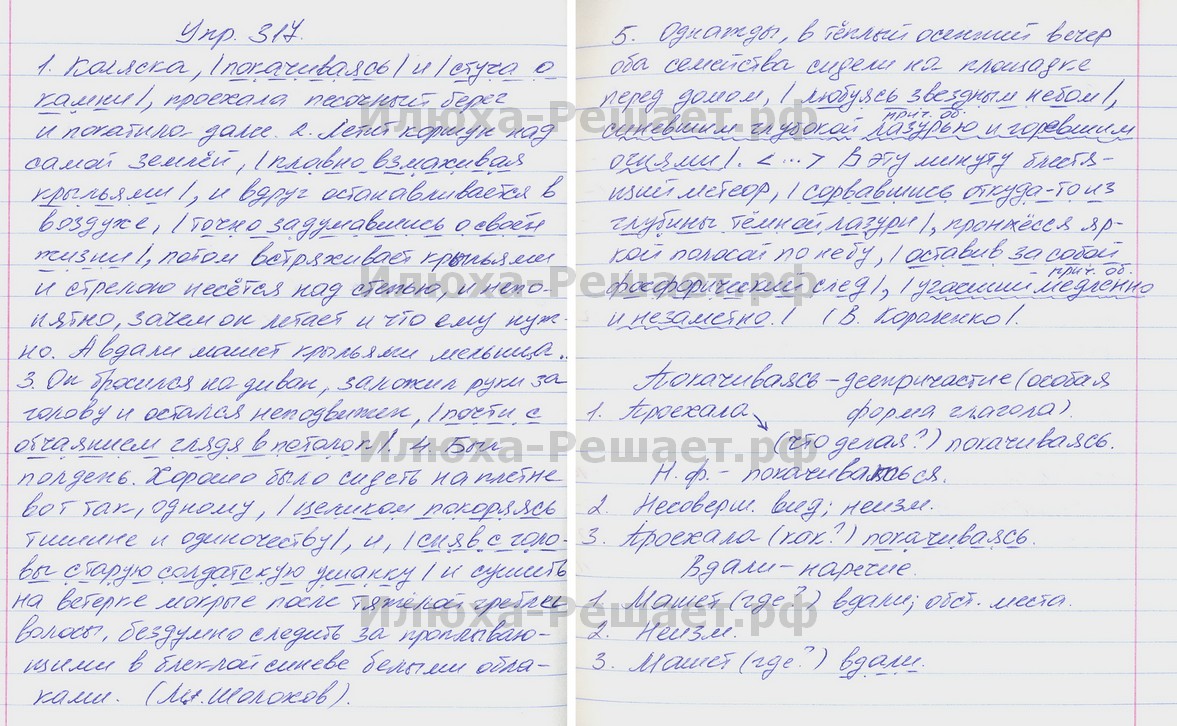 Упр. 317.
1. Коляска, |покачиваясь| и |стуча о
камни|, проехала песочный берег
и покатила даже. 2. Летит коршун над
самой землёй, |плавно взмахивая
крыльями|, и вдруг останавливается в
воздухе, |точно задумавшись о своей
жизни|, потом встряхивает крыльями
и стрелою несётся над степью, и непо-
нятно, зачем он летает и что ему нуж-
но. А вдали машет крыльями мельница..
3. Он бросился на диван, заложил руки за
голову и остался неподвижен, |почти с
отчаянием глядя в потолок|. 4. Был
полдень. Хорошо было сидеть на плетне
вот так, одному, |целиком покоряясь
тишине и одиночеству|, и, |сняв с голо-
вы старую солдатскую ушанку| и сушить
на ветерке мокрые после тяжёлой гребли
волосы, бездумно следить за проплываю-
щими в блеклой синеве белыми обла-
ками. (М. Шолохов).
5. Однажды, в тёплый осенний вечер
оба семейства сидели на площадке
перед домом, |любуясь звездным небом|,
прич. об.
синевшим глубокой лазурью и горевшим
огнями|. <...> В эту минуту блестя-
щий метеор, |сорвавшись откуда-то из
глубины тёмной лазури|, пронёсся яр-
кой полосой по небу, |оставив за собой
прич. об.
фосфорический след|, |угасший медленно
и незаметно.| (В. Короленко).
Покачиваясь – деепричастие (особая
форма глагола).
1. Проехала
(что делая?) покачиваясь.
Н.ф. – покачиваться.
2. Несоверш. вид; неизм.
3. Проехала (как?) покачиваясь.
Вдали – наречие.
1. Машет (где?) вдали; обст. места.
2. Неизм.
3. Машет (где?) вдали.
Илюха-Решает.рф
Илюха-Решает.рф
Илюха-Решает.рф
Илюха-Решает.рф